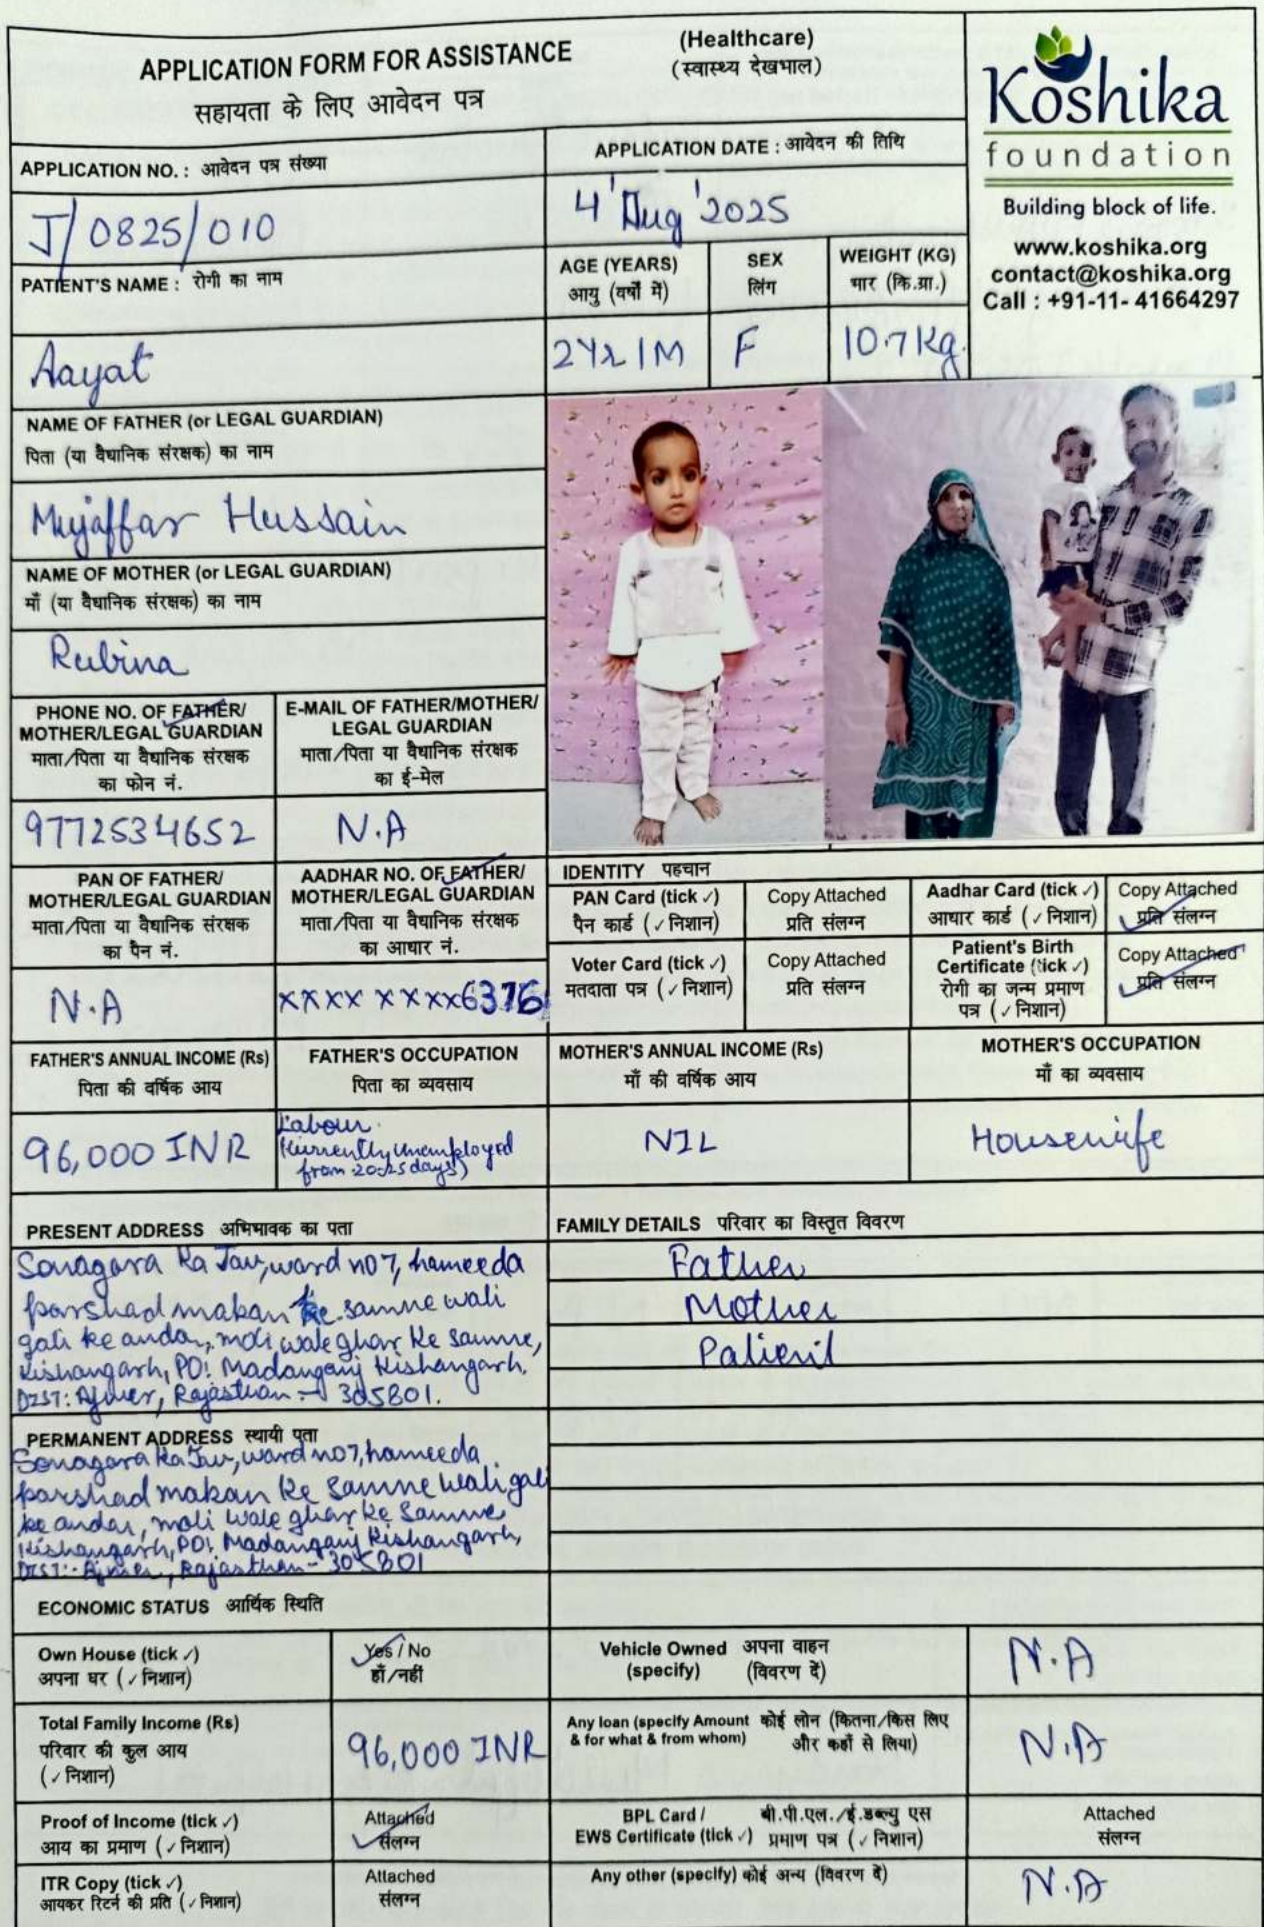 APPLICATION FORM FOR ASSISTANCE
(Healthcare)
(स्वास्थ्य देखभाल)
सहायता के लिए आवेदन पत्र
Koshika
foundation
Building block of life.
www.koshika.org
contact@koshika.org
Call : +91-11- 41664297
APPLICATION NO. : आवेदन पत्र संख्या
APPLICATION DATE : आवेदन की तिथि
J/0825/010
4'Aug'2025
PATIENT'S NAME : रोगी का नाम
AGE (YEARS)
आयु (वर्षों में)
SEX
लिंग
WEIGHT (KG)
भार (कि.ग्रा.)
Aayat
2Yr 1M
F
10.7 Kg.
NAME OF FATHER (or LEGAL GUARDIAN)
पिता (या वैधानिक संरक्षक) का नाम
Mujaffar Hussain
NAME OF MOTHER (or LEGAL GUARDIAN)
माँ (या वैधानिक संरक्षक) का नाम
Rubina
PHONE NO. OF FATHER/
MOTHER/LEGAL GUARDIAN
माता/पिता या वैधानिक संरक्षक
का फोन नं.
E-MAIL OF FATHER/MOTHER/
LEGAL GUARDIAN
माता/पिता या वैधानिक संरक्षक
का ई-मेल
9772534652
N.A
PAN OF FATHER/
MOTHER/LEGAL GUARDIAN
माता/पिता या वैधानिक संरक्षक
का पैन नं.
AADHAR NO. OF FATHER/
MOTHER/LEGAL GUARDIAN
माता/पिता या वैधानिक संरक्षक
का आधार नं.
N.A
xxxx xxxx6376
IDENTITY पहचान
PAN Card (tick ✓)
पैन कार्ड (✓ निशान)
Copy Attached
प्रति संलग्न
Aadhar Card (tick ✓)
आधार कार्ड (✓ निशान)
Copy Attached
प्रति संलग्न
Voter Card (tick ✓)
मतदाता पत्र (✓ निशान)
Copy Attached
प्रति संलग्न
Patient's Birth
Certificate (tick ✓)
रोगी का जन्म प्रमाण
पत्र (✓ निशान)
Copy Attached
प्रति संलग्न
FATHER'S ANNUAL INCOME (Rs)
पिता की वार्षिक आय
FATHER'S OCCUPATION
पिता का व्यवसाय
MOTHER'S ANNUAL INCOME (Rs)
माँ की वार्षिक आय
MOTHER'S OCCUPATION
माँ का व्यवसाय
96,000 INR
Labour
(Currently unemployed
from 20-25 days)
NIL
Housewife
PRESENT ADDRESS अभिभावक का पता
Sonagara Ka Jav, ward no 7, hameeda
parshad makan ke samne wali
gali ke andar, moli wale ghar ke samne,
Kishangarh, PO: Madanganj Kishangarh.
DIST: Ajmer, Rajasthan - 305801.
FAMILY DETAILS परिवार का विस्तृत विवरण
Father
Mother
Patient
PERMANENT ADDRESS स्थायी पता
Sonagara Ka Jav, ward no 7, hameeda
parshad makan ke samne wali gali
ke andar, moli wale ghar ke samne
Kishangarh, PO: Madanganj Kishangarh,
DIST:- Ajmer, Rajasthan - 305801
ECONOMIC STATUS आर्थिक स्थिति
Own House (tick ✓)
अपना घर (✓ निशान)
Yes / No
हाँ/नहीं
Vehicle Owned अपना वाहन
(specify) (विवरण दें)
N.A
Total Family Income (Rs)
परिवार की कुल आय
(✓ निशान)
96,000 INR
Any loan (specify Amount कोई लोन (कितना/किस लिए
& for what & from whom) और कहाँ से लिया)
N.A
Proof of Income (tick ✓)
आय का प्रमाण (✓ निशान)
Attached
संलग्न
BPL Card / बी.पी.एल./ई.डब्ल्यु एस
EWS Certificate (tick ✓) प्रमाण पत्र (✓ निशान)
Attached
संलग्न
ITR Copy (tick ✓)
आयकर रिटर्न की प्रति (✓ निशान)
Attached
संलग्न
Any other (specify) कोई अन्य (विवरण दें)
N.A